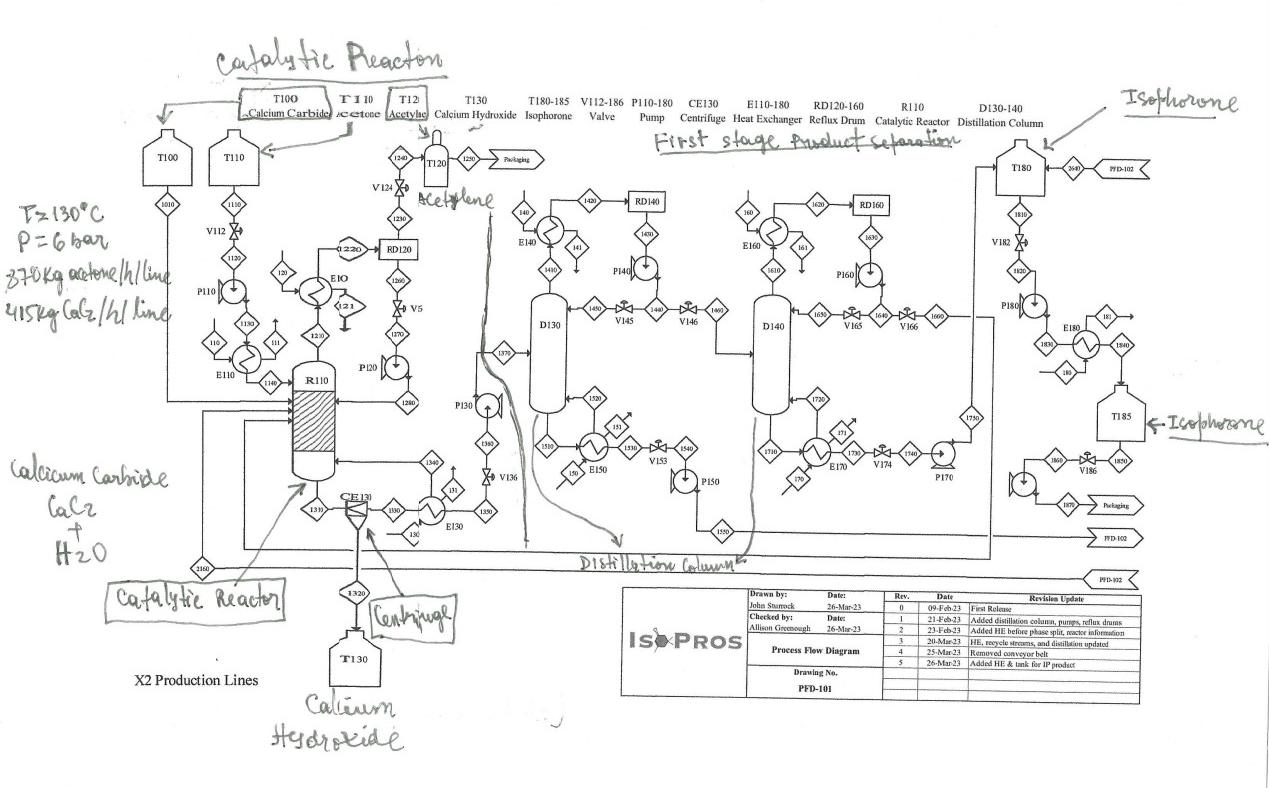 Catalytic Reactor
T100 T110 T12 T130 T180-185 V112-186 P110-180 CE130 E110-180 RD120-160 R110 D130-140
Calcium Carbide Acetone Acetyle Calcium Hydroxide Isophorone Valve Pump Centrifuge Heat Exchanger Reflux Drum Catalytic Reactor Distillation Column
Isophorone
First stage Product separation
T100
T110
T120
1240
1250
Packaging
T180
2640
PFD-102
V124
Acetylene
1010
1110
V112
1120
P110
1130
110
111
E110
1140
T=130°C
P=6 bar
370kg acetone/h/line
415kg CaC2/h/line
1230
1220
RD120
120
E10
121
1210
1260
V5
1270
P120
1280
R110
140
E140
141
1420
RD140
1430
P140
1410
1450
V145
1440
V146
1460
D130
1370
P130
1360
V136
1350
1520
151
1510
E150
150
1530
V153
1540
P150
1550
160
E160
161
1620
RD160
1630
P160
1610
1650
V165
1640
V166
1660
D140
1720
171
1710
E170
170
1730
V174
1740
P170
1750
1810
V182
1820
P180
1830
E180
181
180
1840
T185
Isophorone
1850
V186
1860
1870
Packaging
PFD-102
PFD-102
Calcicum Carbide
CaC2
+
H2O
1310
CE130
1330
1340
131
E130
130
2160
1320
T130
Catalytic Reactor
Centrifuge
Distillation Column
Calcium
Hydroxide
X2 Production Lines
ISOPROS
Drawn by: Date:
John Sturrock 26-Mar-23
Checked by: Date:
Allison Greenough 26-Mar-23
Process Flow Diagram
Drawing No.
PFD-101
Rev. Date Revision Update
0 09-Feb-23 First Release
1 21-Feb-23 Added distillation column, pumps, reflux drums
2 23-Feb-23 Added HE before phase split, reactor information
3 20-Mar-23 HE, recycle streams, and distillation updated
4 25-Mar-23 Removed conveyor belt
5 26-Mar-23 Added HE & tank for IP product